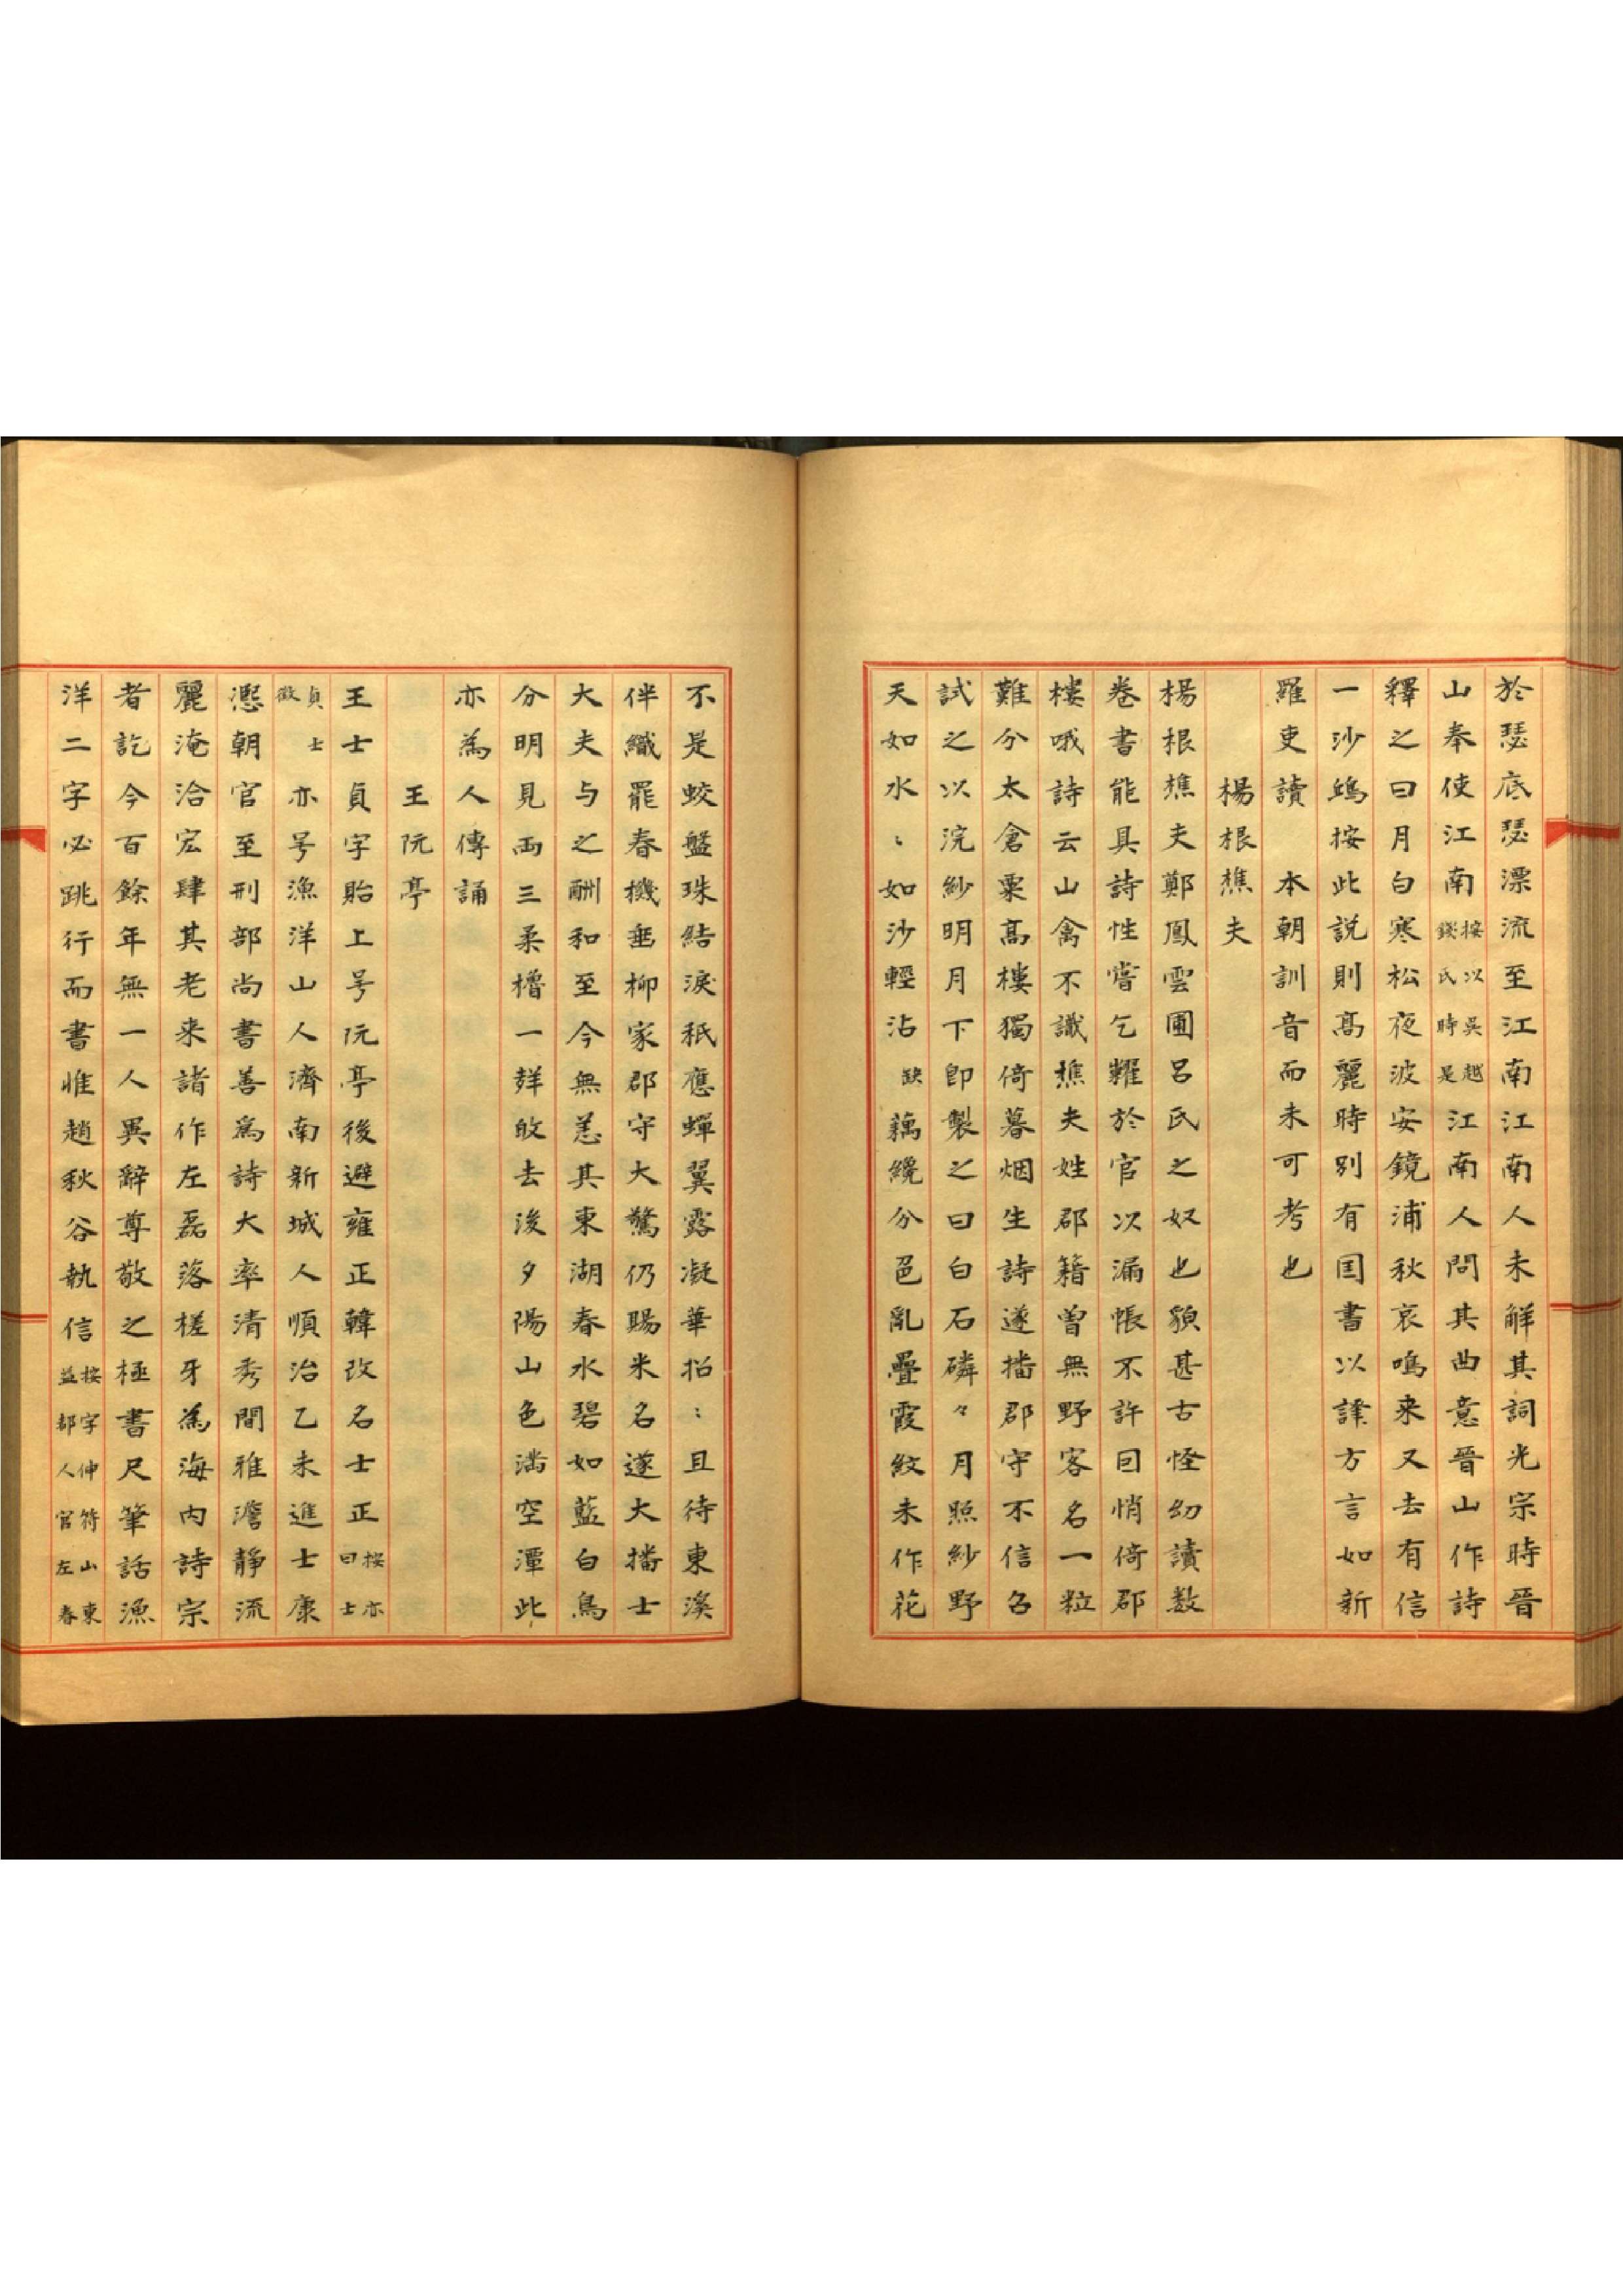 於瑟底瑟漂流至江南江南人未解其詞光宗時晉
山奉使江南按以吳越錢氏時是江南人問其曲意晉山作詩
釋之曰月白寒松夜波安鏡浦秋哀鳴来又去有信
一沙鷗按此說則高麗時別有囯書以譯方言如新
羅吏讀　本朝訓音而未可考也
楊根樵夫
楊根樵夫鄭鳳雲圃呂氏之奴也貌甚古怪幼讀数
卷書能具詩性嘗乞糶於官以漏帳不許回悄倚郡
樓哦詩云山禽不識樵夫姓郡籍曾無野客名一粒
難分太倉粟高樓獨倚暮烟生詩遂播郡守不信召
試之以浣紗明月下即製之曰白石磷々月照紗野
天如水〻如沙輕沾缺藕纔分色亂疊霞紋未作花
不是蛟盤珠結淚秖應蟬翼露凝華招〻且待東溪
伴織罷春機垂柳家郡守大驚仍賜米名遂大播士
大夫与之酬和至今無恙其東湖春水碧如藍白鳥
分明見兩三柔櫓一聲𣁋去後夕陽山色滿空潭此
亦為人傳誦
王阮亭
王士貞字貽上号阮亭後避雍正韓改名士正按亦曰士
貞士徵亦号漁洋山人濟南新城人順治乙未進士康
熙朝官至刑部尚書善為詩大率清秀間雅澹靜流
麗淹洽宏肆其老来諸作左磊落槎牙為海内詩宗
者訖今百餘年無一人異辭尊敬之極書尺筆話漁
洋二字必跳行而書惟趙秋谷執信按字伸符山東益都人官左春